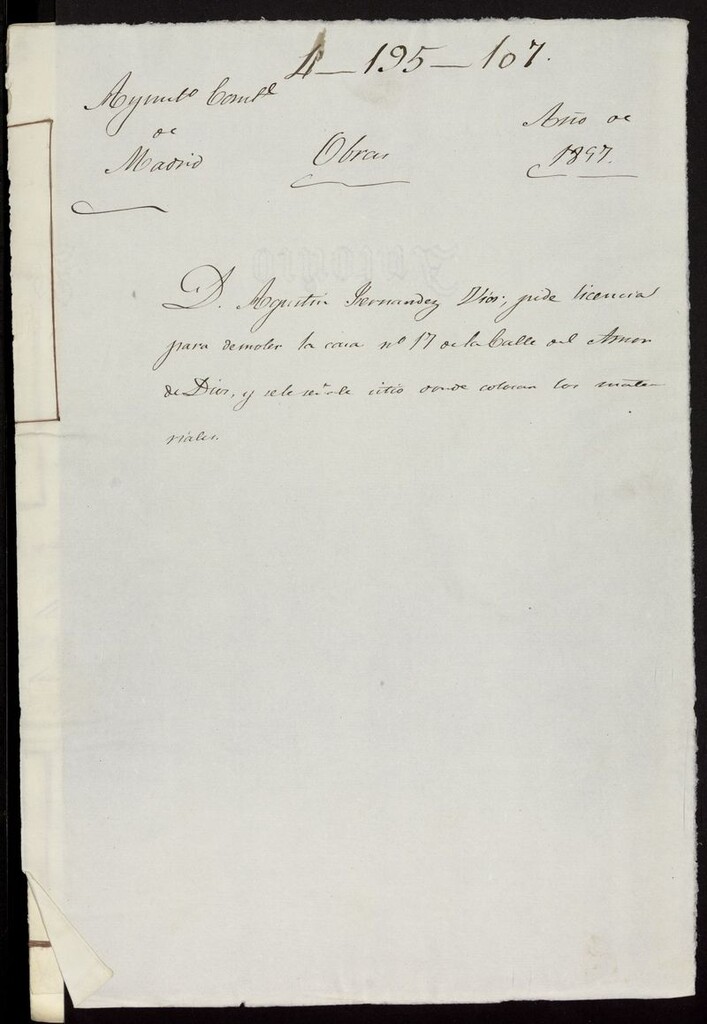 4—195—107.
Ayunto Constl
de
Madrid
Obras
Año de
1857.
D. Agustin Fernandez Rios, pide licencia
para demoler la casa nº 17 de la Calle del Amor
de Dios, y se le señale sitio donde colocar los mate
riales.